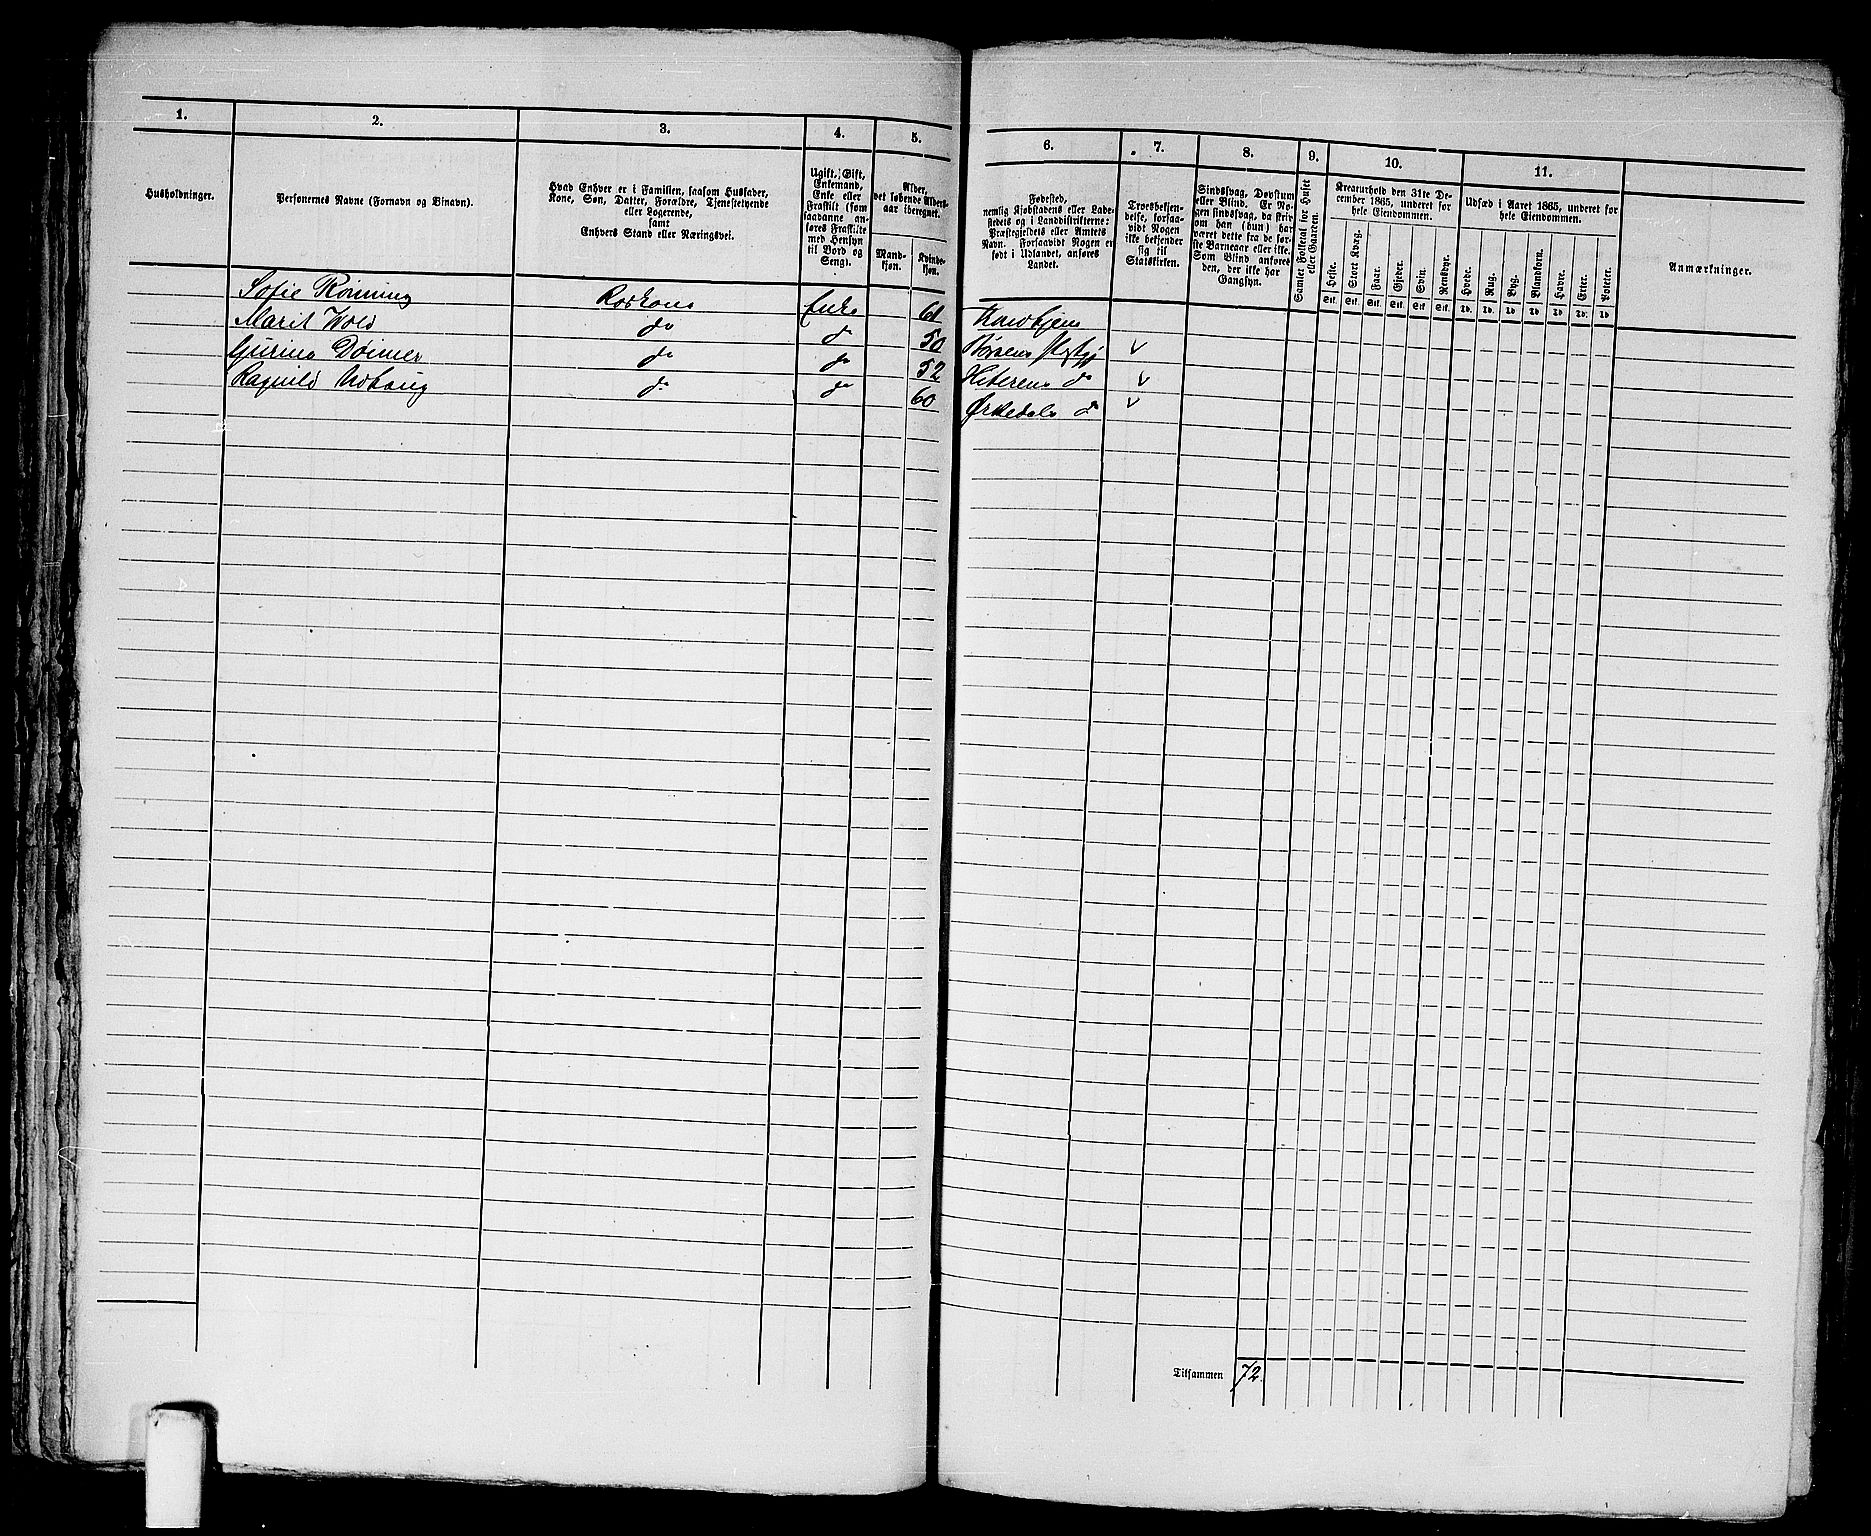 1.
2.
3.
4.
5.
Husholdninger.
Personernes Navne (Fornavn og Binavn).
Hvad Enhver er i Familien, saasom Husfader,
Kone, Søn, Datter, Forældre, Tjenestetyende
eller Logerende,
samt
Enhvers Stand eller Næringsvei.
Ugift, Gift,
Enkemand,
Enke eller
Fraskilt (som
saadanne an-
føres Fraskilte
med Hensyn
til Bord og
Seng).
Alder,
det løbende Alders-
aar iberegnet.
Mand-
kjøn.
Kvinde-
kjøn.
Sofie Rønning Enke 61
Marit Wold do do 50
Gurine do do 52
Ragnild do do 60
6.
7.
8.
9.
10.
11.
Fødested,
nemlig Kjøbstadens eller Lade-
stedets og i Landdistrikterne:
Præstegjeldets eller Amtets
Navn. Forsaavidt Nogen er
født i Udlandet, anføres
Landet.
Troesbekjen-
delse, forsaa-
vidt Nogen
ikke bekjender
sig til
Statskirken.
Sindssvag, Døvstum
eller Blind. Er No-
gen sindssvag, da skriv
om han (hun) har
været dette fra de før-
ste Barneaar eller ikke.
Som Blind anføres
den, der ikke har
Gangsyn.
Samlet Folketal for Huset
eller Gaarden.
Kreaturhold den 31te De-
cember 1865, underet for
hele Eiendommen.
Heste.
Stort Kvæg.
Faar.
Gjeder.
Svin.
Rensdyr.
Stk.
Stk.
Stk.
Stk.
Stk
Stk.
Udsæd i Aaret 1865, underet for
hele Eiendommen.
Hvede.
Rug.
Byg.
Blandkorn.
Havre.
Erter.
Poteter.
Td.
Td.
Td
Td
Td
Td.
Td
Anmærkninger.
Trondhjem
Børsens Prstgj v
Hiterens do v
Ørkedals do v
Tilsammen 72.